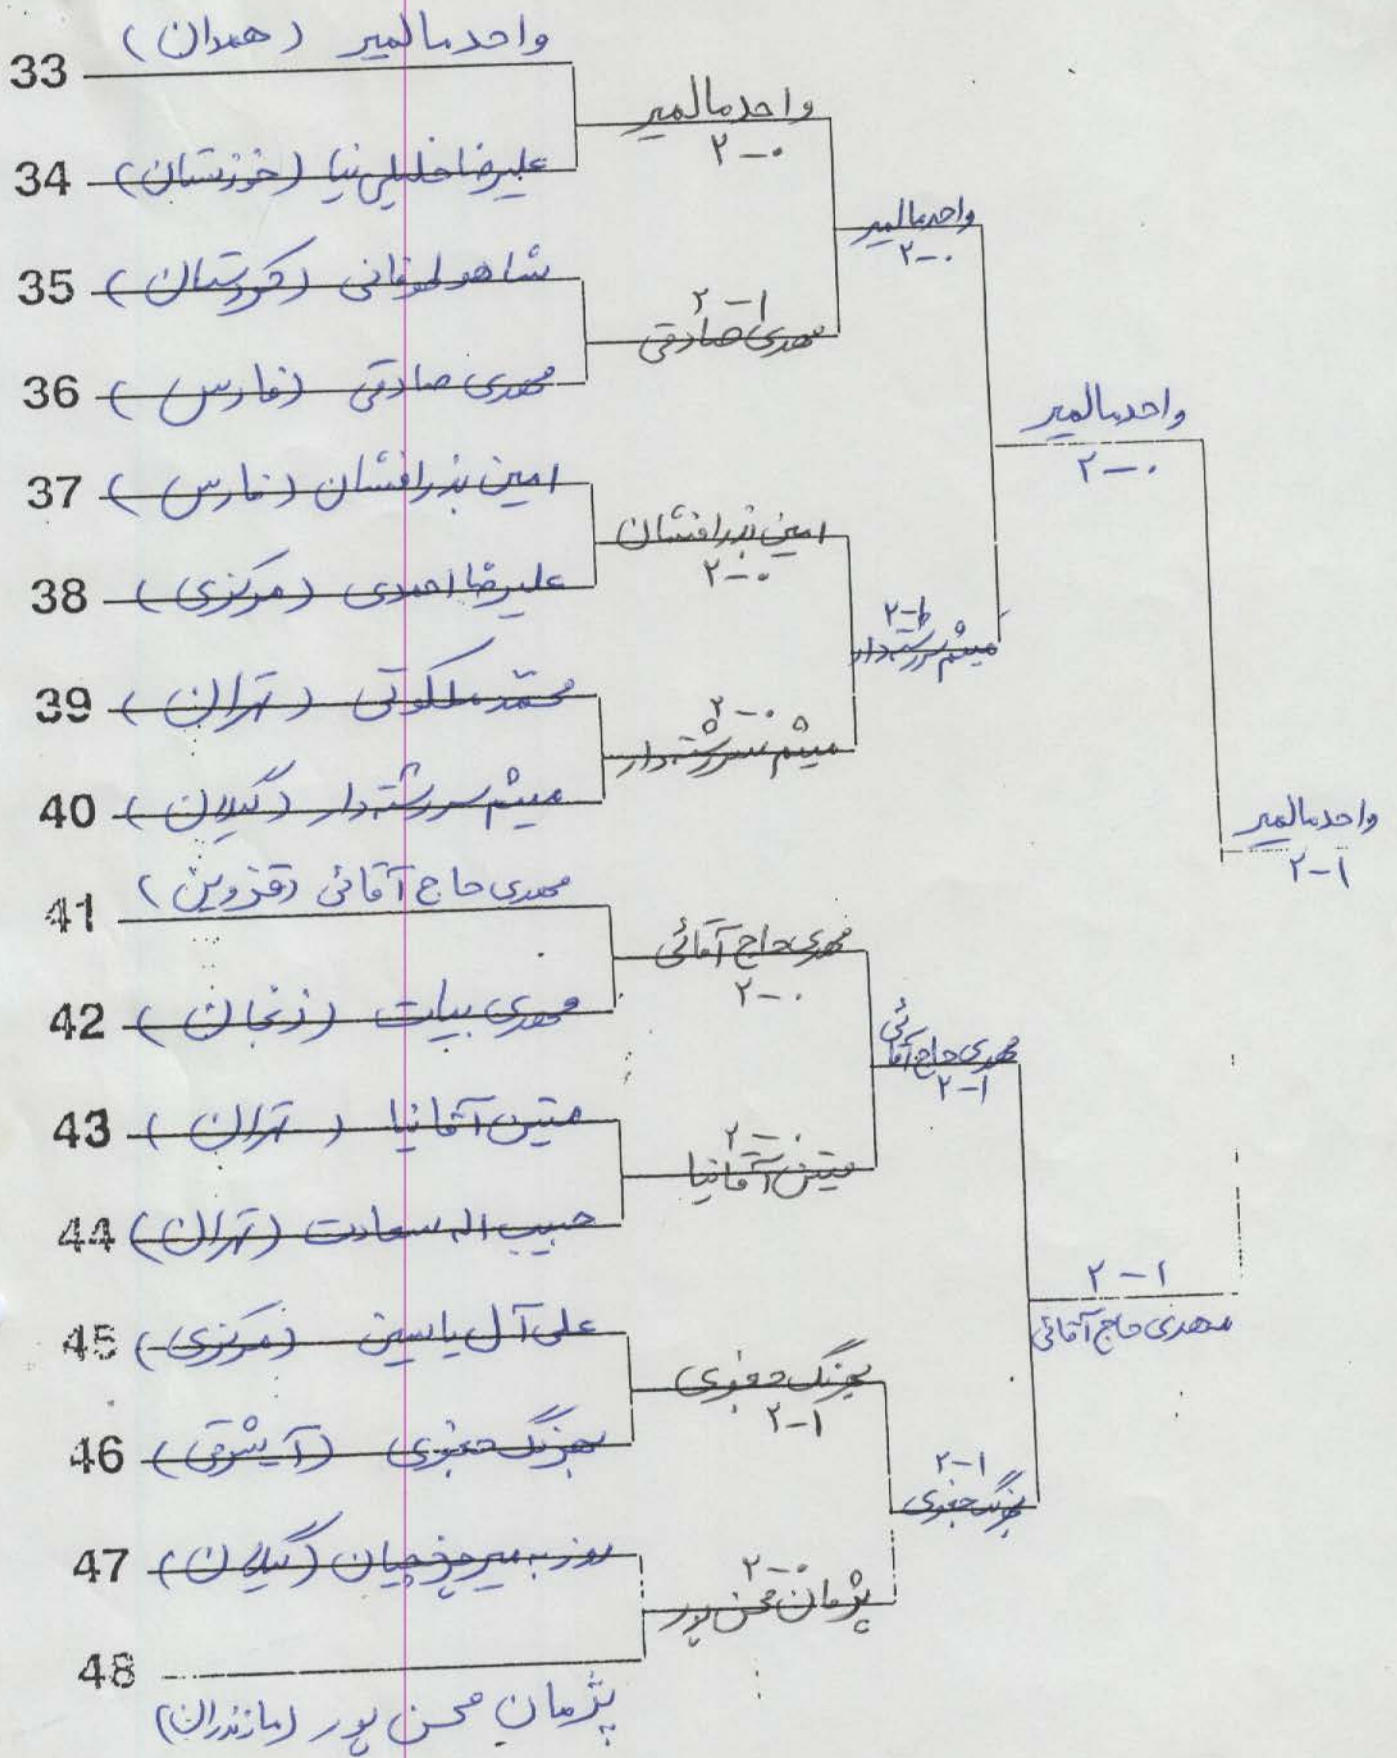 33 واحد مالمیر (همدان)
34 علیرضا خلیلی نیا (خوزستان)
35 شاهو لهونی (کردستان)
36 مهدی صادقی (فارس)
37 امین بذرافشان (فارس)
38 علیرضا احمدی (مرکزی)
39 محمد ملکوتی (تهران)
40 میثم سررشته دار (گیلان)
41 مهدی حاج آقائی (قزوین)
42 مهدی بیات (زنجان)
43 متین آقانیا (تهران)
44 حبیب اله سعادت (تهران)
45 علی آل یاسین (مرکزی)
46 بهرنگ جعفری (آ.شرقی)
47 روزبه (گیلان)
48
پژمان محسن پور (مازندران)
واحد مالمیر
۲-۰
۲-۱
مهدی صادقی
امین بذرافشان
۲-۰
۲-۰
میثم سررشته دار
مهدی حاج آقائی
۲-۰
۲-۰
متین آقانیا
بهرنگ جعفری
۲-۱
۲-۰
پژمان محسن پور
واحد مالمیر
۲-۰
میثم سررشته دار
مهدی حاج آقائی
۲-۱
۲-۱
بهرنگ جعفری
واحد مالمیر
۲-۰
۲-۱
مهدی حاج آقائی
واحد مالمیر
۲-۱